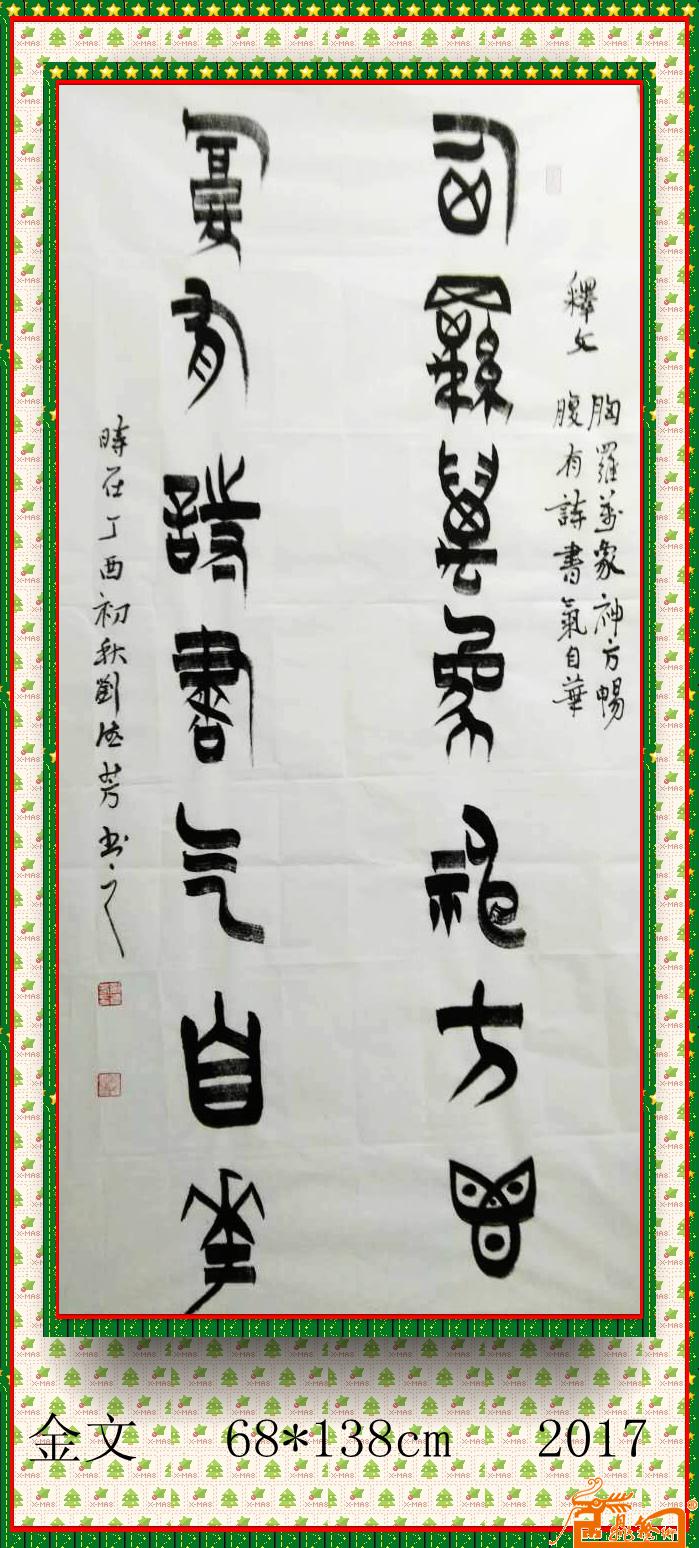 釋文
胸羅萬象神方暢
腹有詩書氣自華
胸羅萬象神方暢
腹有詩書气自華
時在丁酉初秋劉德芳书之
金文 68*138cm 2017